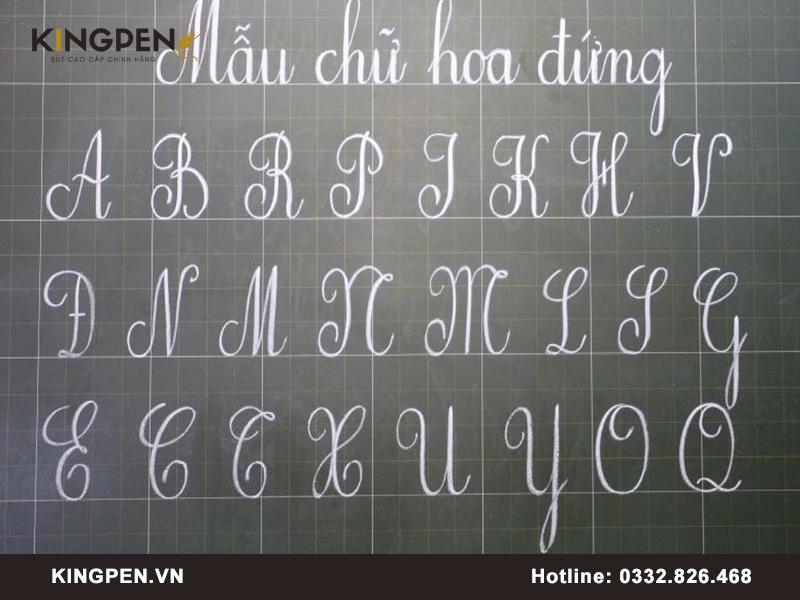 KINGPEN
BÚT CAO CẤP CHÍNH HÃNG
Mẫu chữ hoa đứng
A B R P I K H V
Đ N M N M L S G
E C T X U Y O Q
KINGPEN.VN
Hotline: 0332.826.468